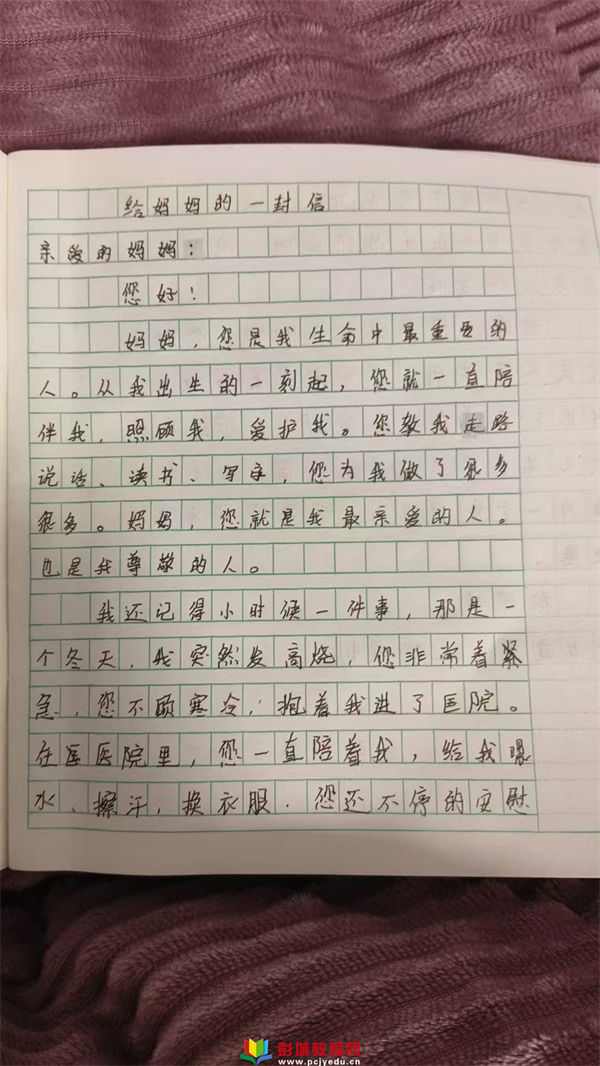 给妈妈的一封信
亲爱的妈妈：
您好！
妈妈，您是我生命中最重要的
人。从我出生的一刻起，您就一直陪
伴我，照顾我，爱护我。您教我走路
说话、读书、写字，您为我做了很多
很多。妈妈，您就是我最亲爱的人。
也是我尊敬的人。
我还记得小时候一件事，那是一
个冬天，我突然发高烧，您非常着紧
急，您不顾寒冷，抱着我进了医院。
在医医院里，您一直陪着我，给我喂
水、擦汗，换衣服．您还不停的安慰
彭城教育网
www.pcjyedu.cn